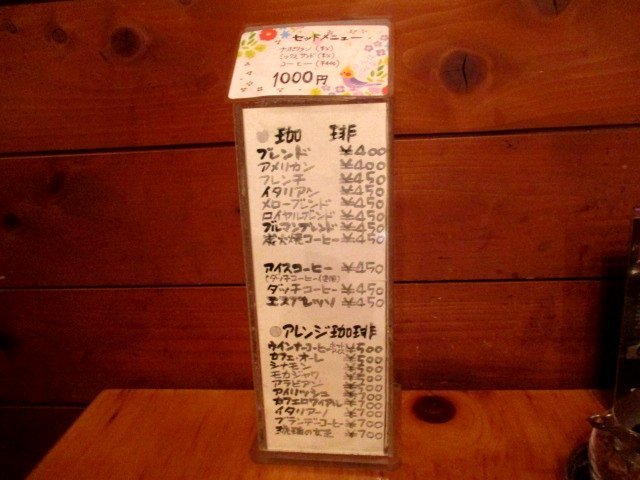 セットメニュー
ナポリタン
コーヒー (¥400)
1000円
珈 琲
ブレンド ¥400
アメリカン ¥400
フレンチ ¥450
イタリアン ¥450
メローブレンド ¥450
ロイヤルブレンド ¥450
ブルマンブレンド ¥450
炭火焼コーヒー ¥450
アイスコーヒー ¥450
ダッチコーヒー ¥450
エスプレッソ ¥450
アレンジ珈琲
ウインナーコーヒー ¥500
カフェ・オーレ ¥500
シナモン ¥500
モカジャワ
アラビアン
アイリッシュ ¥700
カフェロワイアル ¥700
イタリアーノ ¥700
ブランデーコーヒー ¥700
琥珀の女王 ¥700